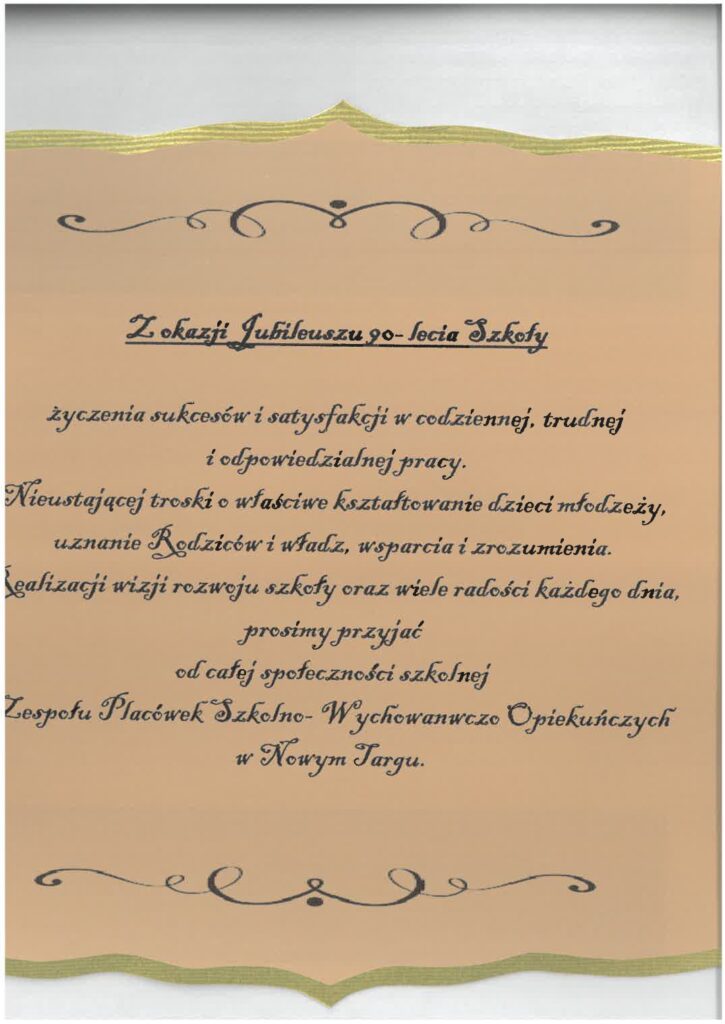 Z okazji Jubileuszu 90- lecia Szkoły
życzenia sukcesów i satysfakcji w codziennej, trudnej
i odpowiedzialnej pracy.
Nieustającej troski o właściwe kształtowanie dzieci młodzeży,
uznanie Rodziców i władz, wsparcia i zrozumienia.
Realizacji wizji rozwoju szkoły oraz wiele radości każdego dnia,
prosimy przyjać
od całej społeczności szkolnej
Zespołu Placówek Szkolno- Wychowanwczo Opiekuńczych
w Nowym Targu.